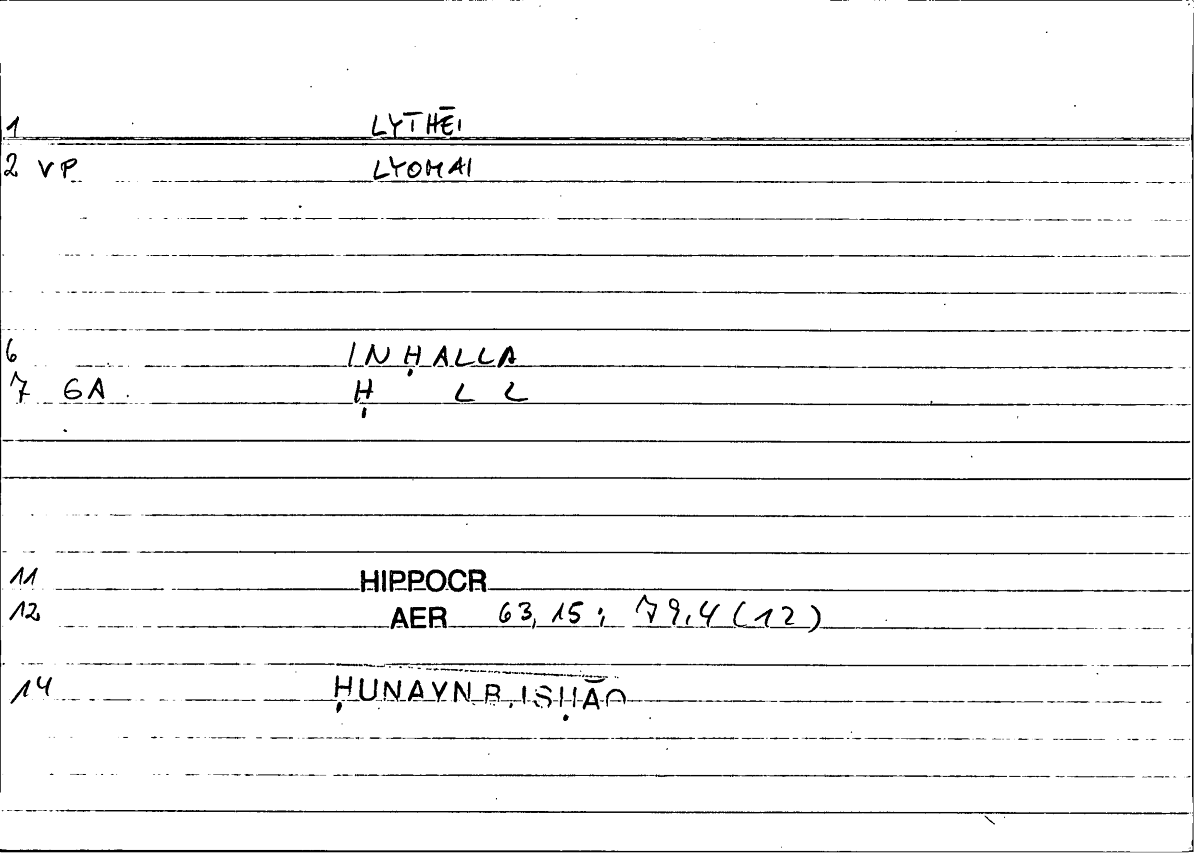 1 LYTHĒI
2 VP LYOMAI
6 INḤALLA
7 6A Ḥ L L
11 HIPPOCR
12 AER 63,15; 79,4 (12)
14 ḤUNAYN B. ISḤĀQ